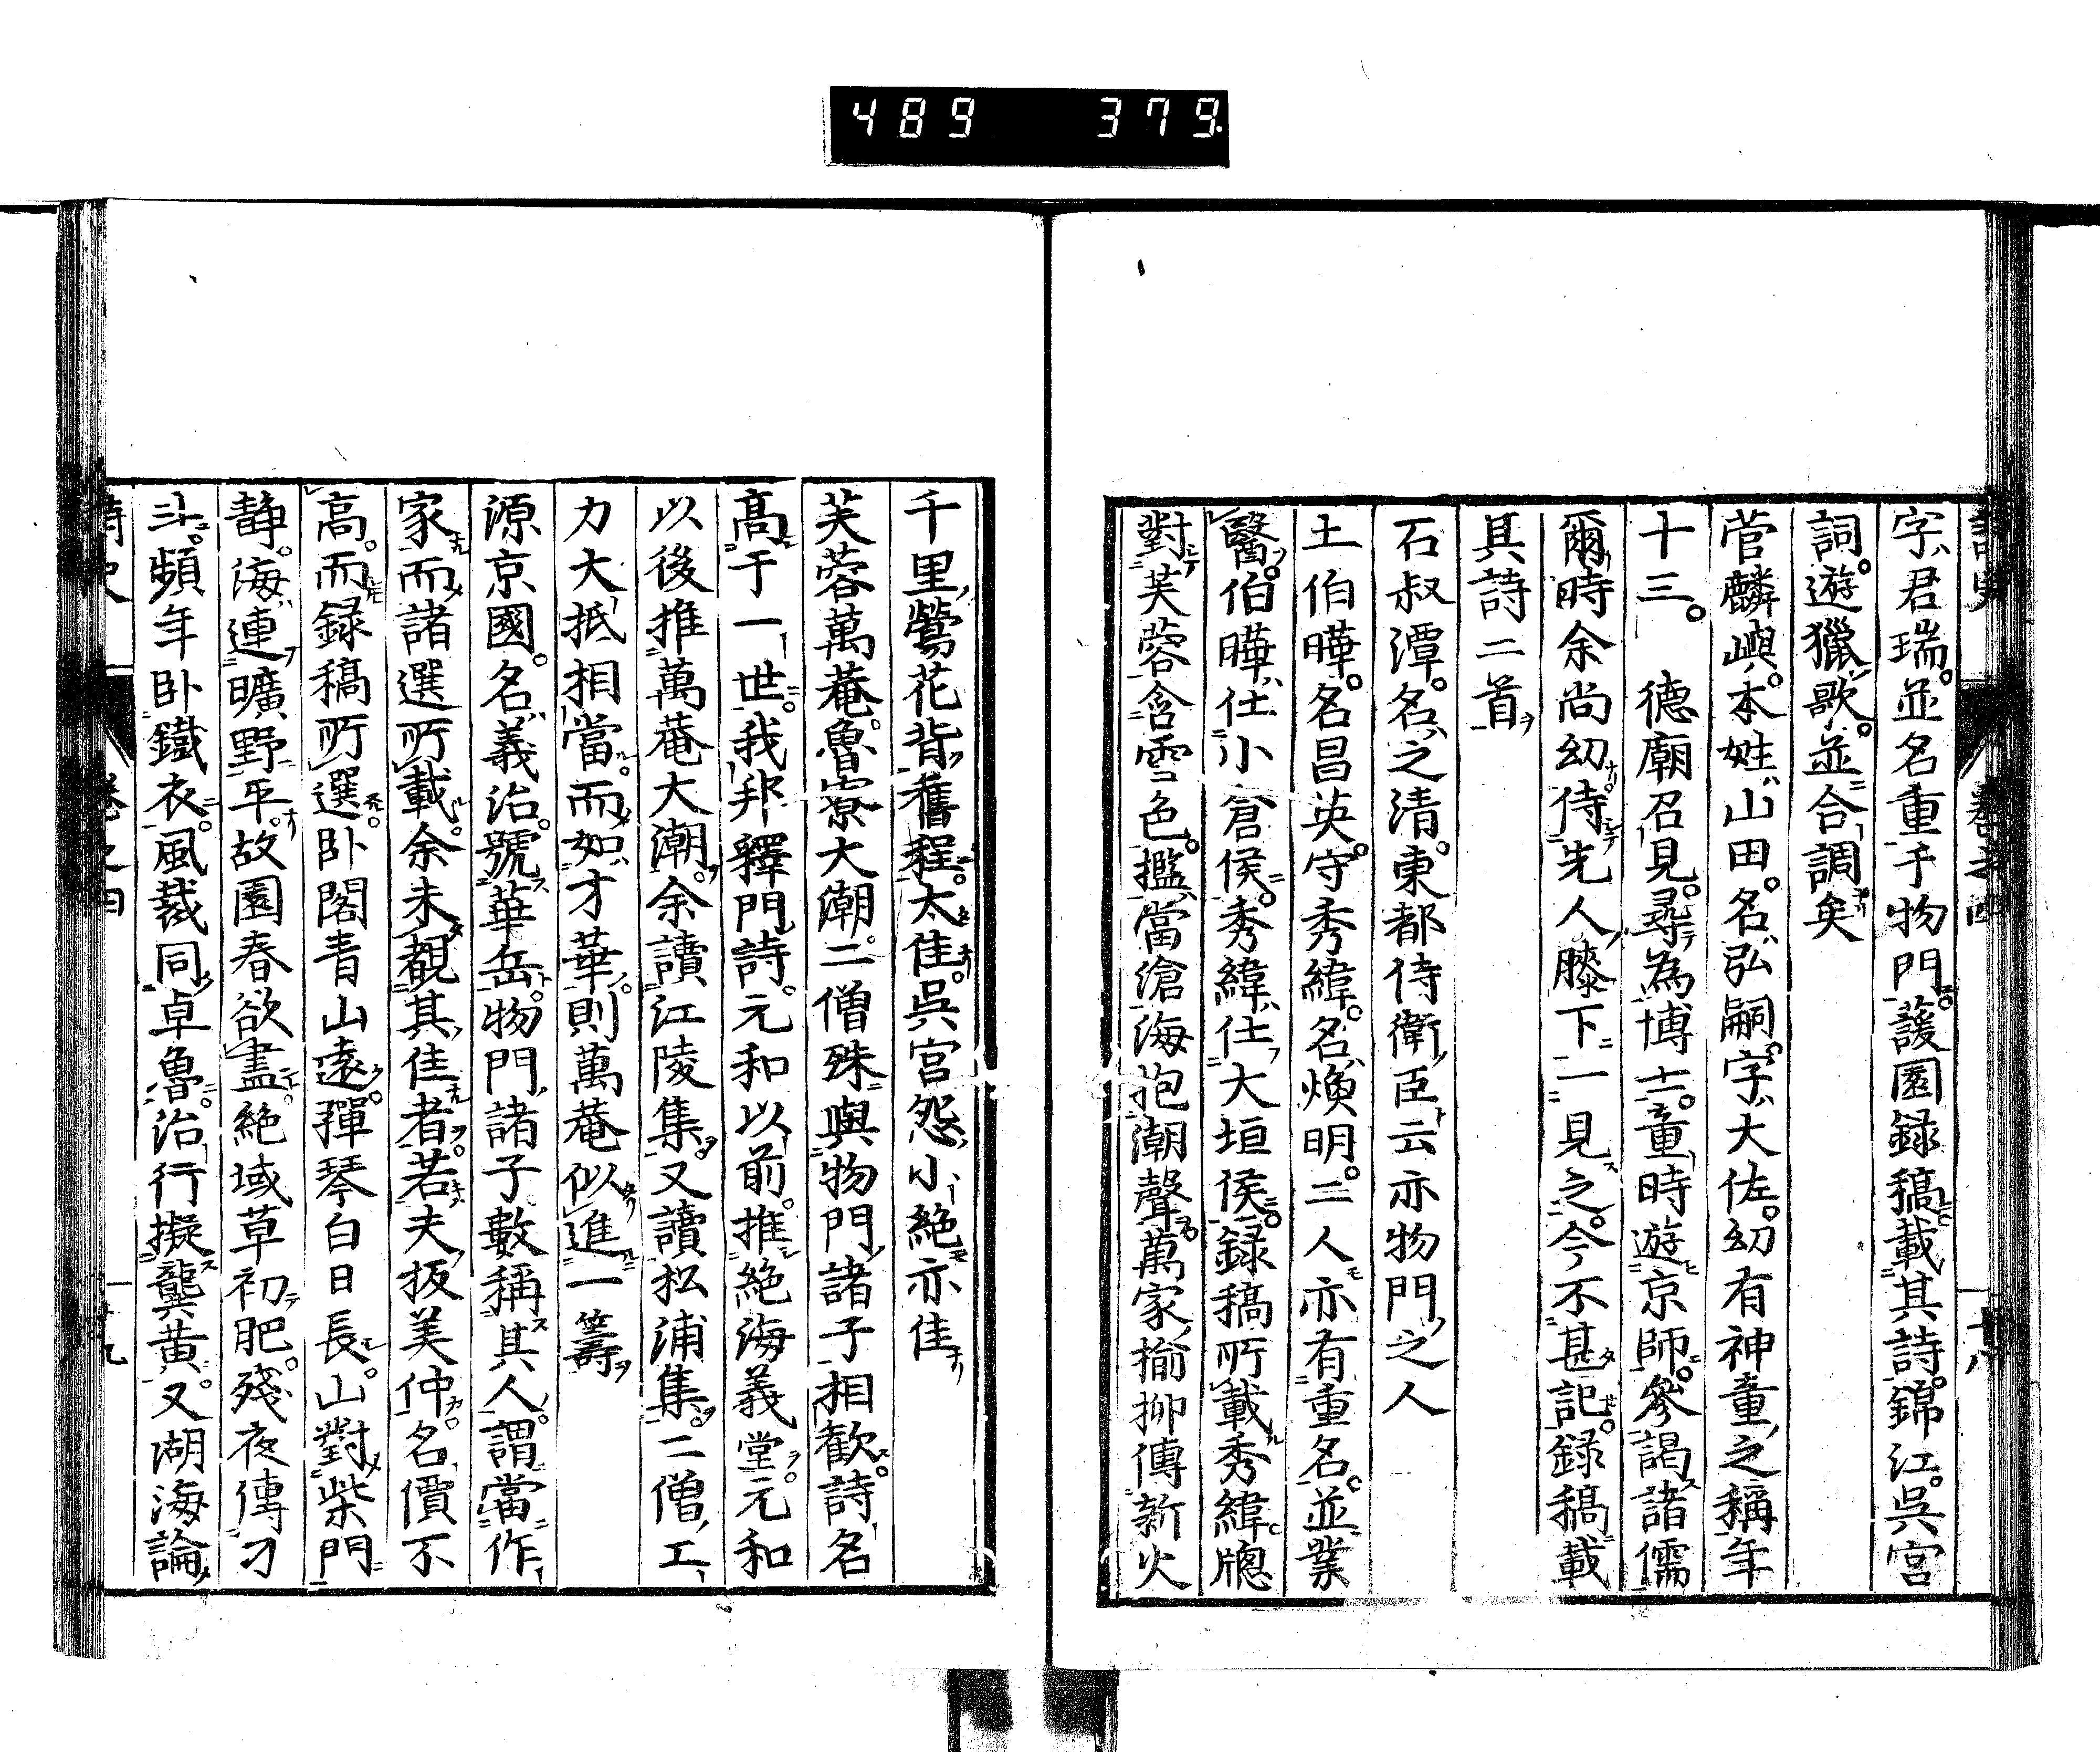 489 379.
字君瑞。並名重于物門。蘐園録稿。載其詩。錦江。呉宮
詞。遊獵歌。並合調矣
菅麟嶼。本姓山田。名弘嗣。字大佐。幼有神童之稱年
十三。德廟召見。尋為博士。童時遊京師。參謁諸儒
爾時余尚幼。侍先人膝下一見之。今不甚記。録稿載
其詩二首
石叔潭。名之清。東都侍衛臣云亦物門之人
土伯曄。名昌英。守秀緯。名煥明。二人亦有重名。並業
醫。伯曄仕小倉侯。秀緯仕大垣侯。録稿所載秀緯牕
對芙蓉含雪色。檻當滄海抱潮聲。萬家揄柳傳新火
千里鶯花背舊程。太佳。呉宮怨小絶亦佳
芙蓉萬菴。魯寮大潮。二僧殊與物門諸子相歡。詩名
高于一世。我邦釋門詩。元和以前。推絶海義堂。元和
以後推萬菴大潮。余讀江陵集。又讀松浦集。二僧工
力大抵相當。而如才華。則萬菴似進一籌
源京國。名義治。號華岳。物門諸子數稱其人。謂當作
家而諸選所載。余未覩其佳者。若夫板美仲。名價不
高。而録稿所選。卧閣青山遠。彈琴白日長。山對柴門
静。海連曠野平。故園春欲盡。絶域草初肥。殘夜傳刁
斗。頻年卧鐵衣。風裁同卓魯。治行擬龔黄。又湖海論
卷之四